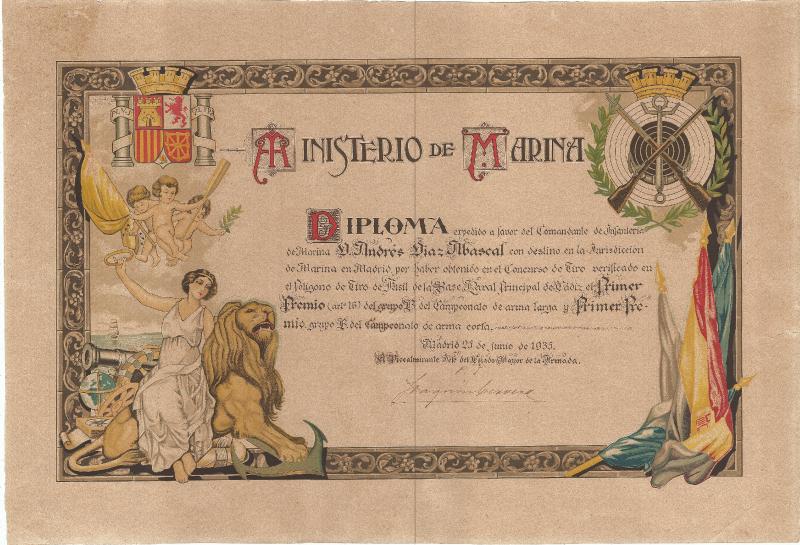 MINISTERIO DE MARINA
DIPLOMA expedido a favor del Comandante de Infantería
de Marina D. Andrés Díaz Abascal con destino en la Jurisdicción
de Marina en Madrid, por haber obtenido en el Concurso de Tiro verificado en
el Polígono de Tiro de Fusil de la Base Naval Principal de Cádiz, el Primer
Premio (artº 16) del grupo B del Campeonato de arma larga y Primer Pre-
mio, grupo B del Campeonato de arma corta.
Madrid 25 de junio de 1935.
El Vicealmirante Jefe del Estado Mayor de la Armada.